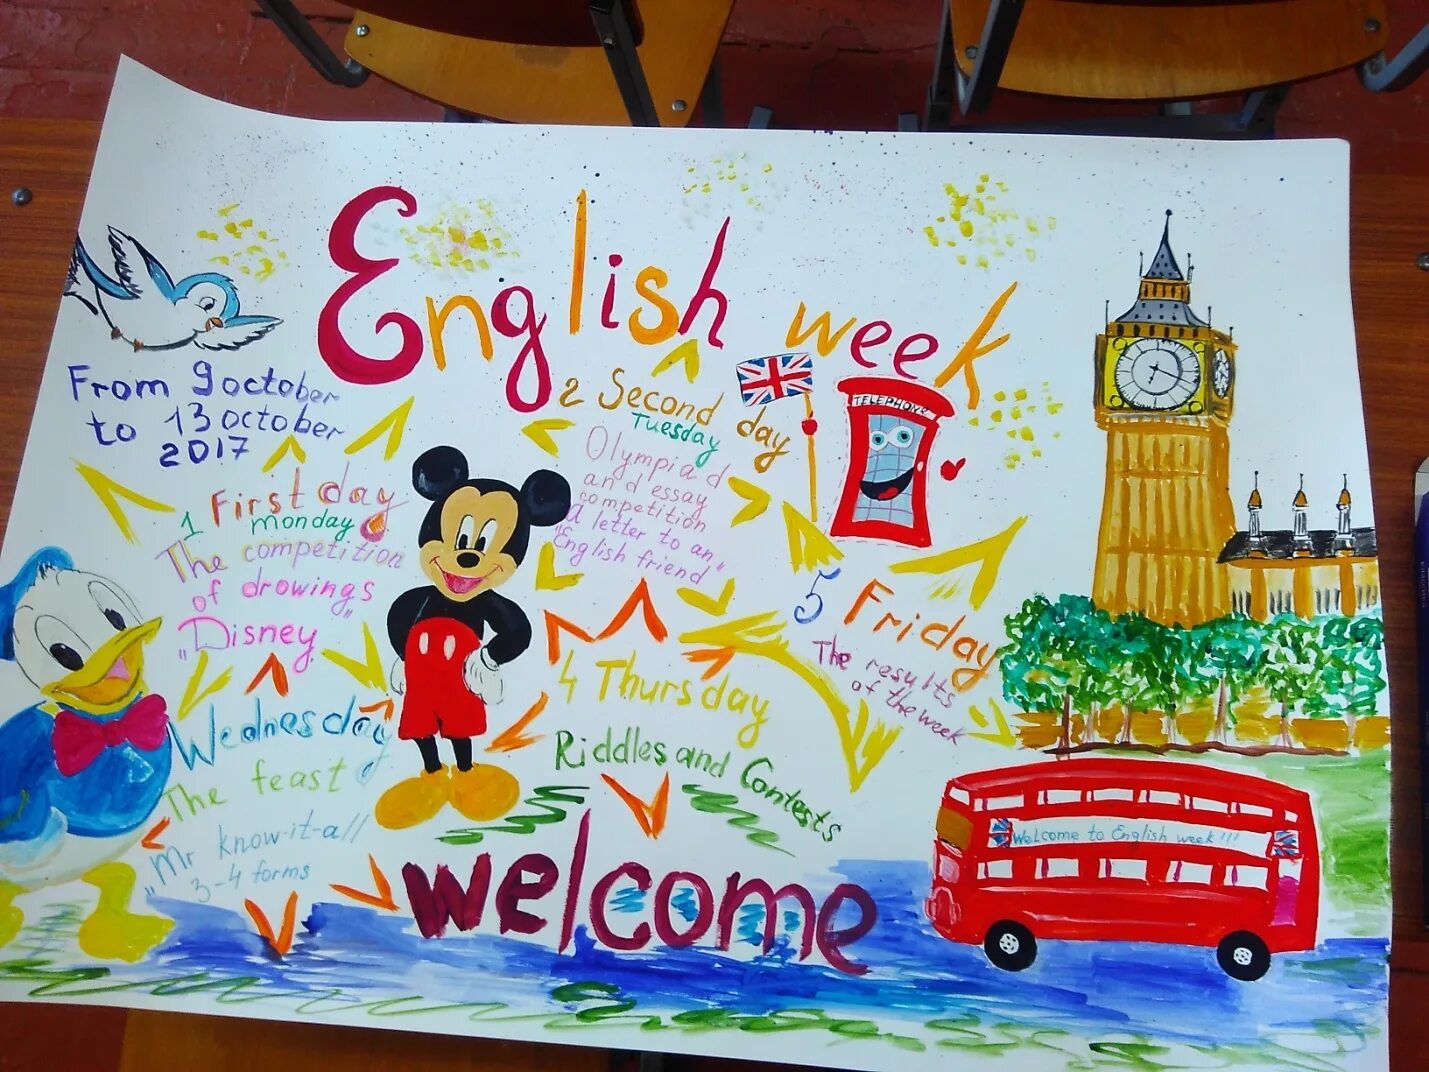 English week
From 9 october
to 13 october
2017
1 First day
monday
The competition
of drowings
"Disney"
2 Second day
Tuesday
Olympiad
and essay
competition
"A letter to an
English friend"
TELEPHONE
Wednesday
The feast of
"Mr know-it-all
3-4 forms
4 Thursday
Riddles and Contests
5 Friday
The results
of the week
welcome
Welcome to English week!!!